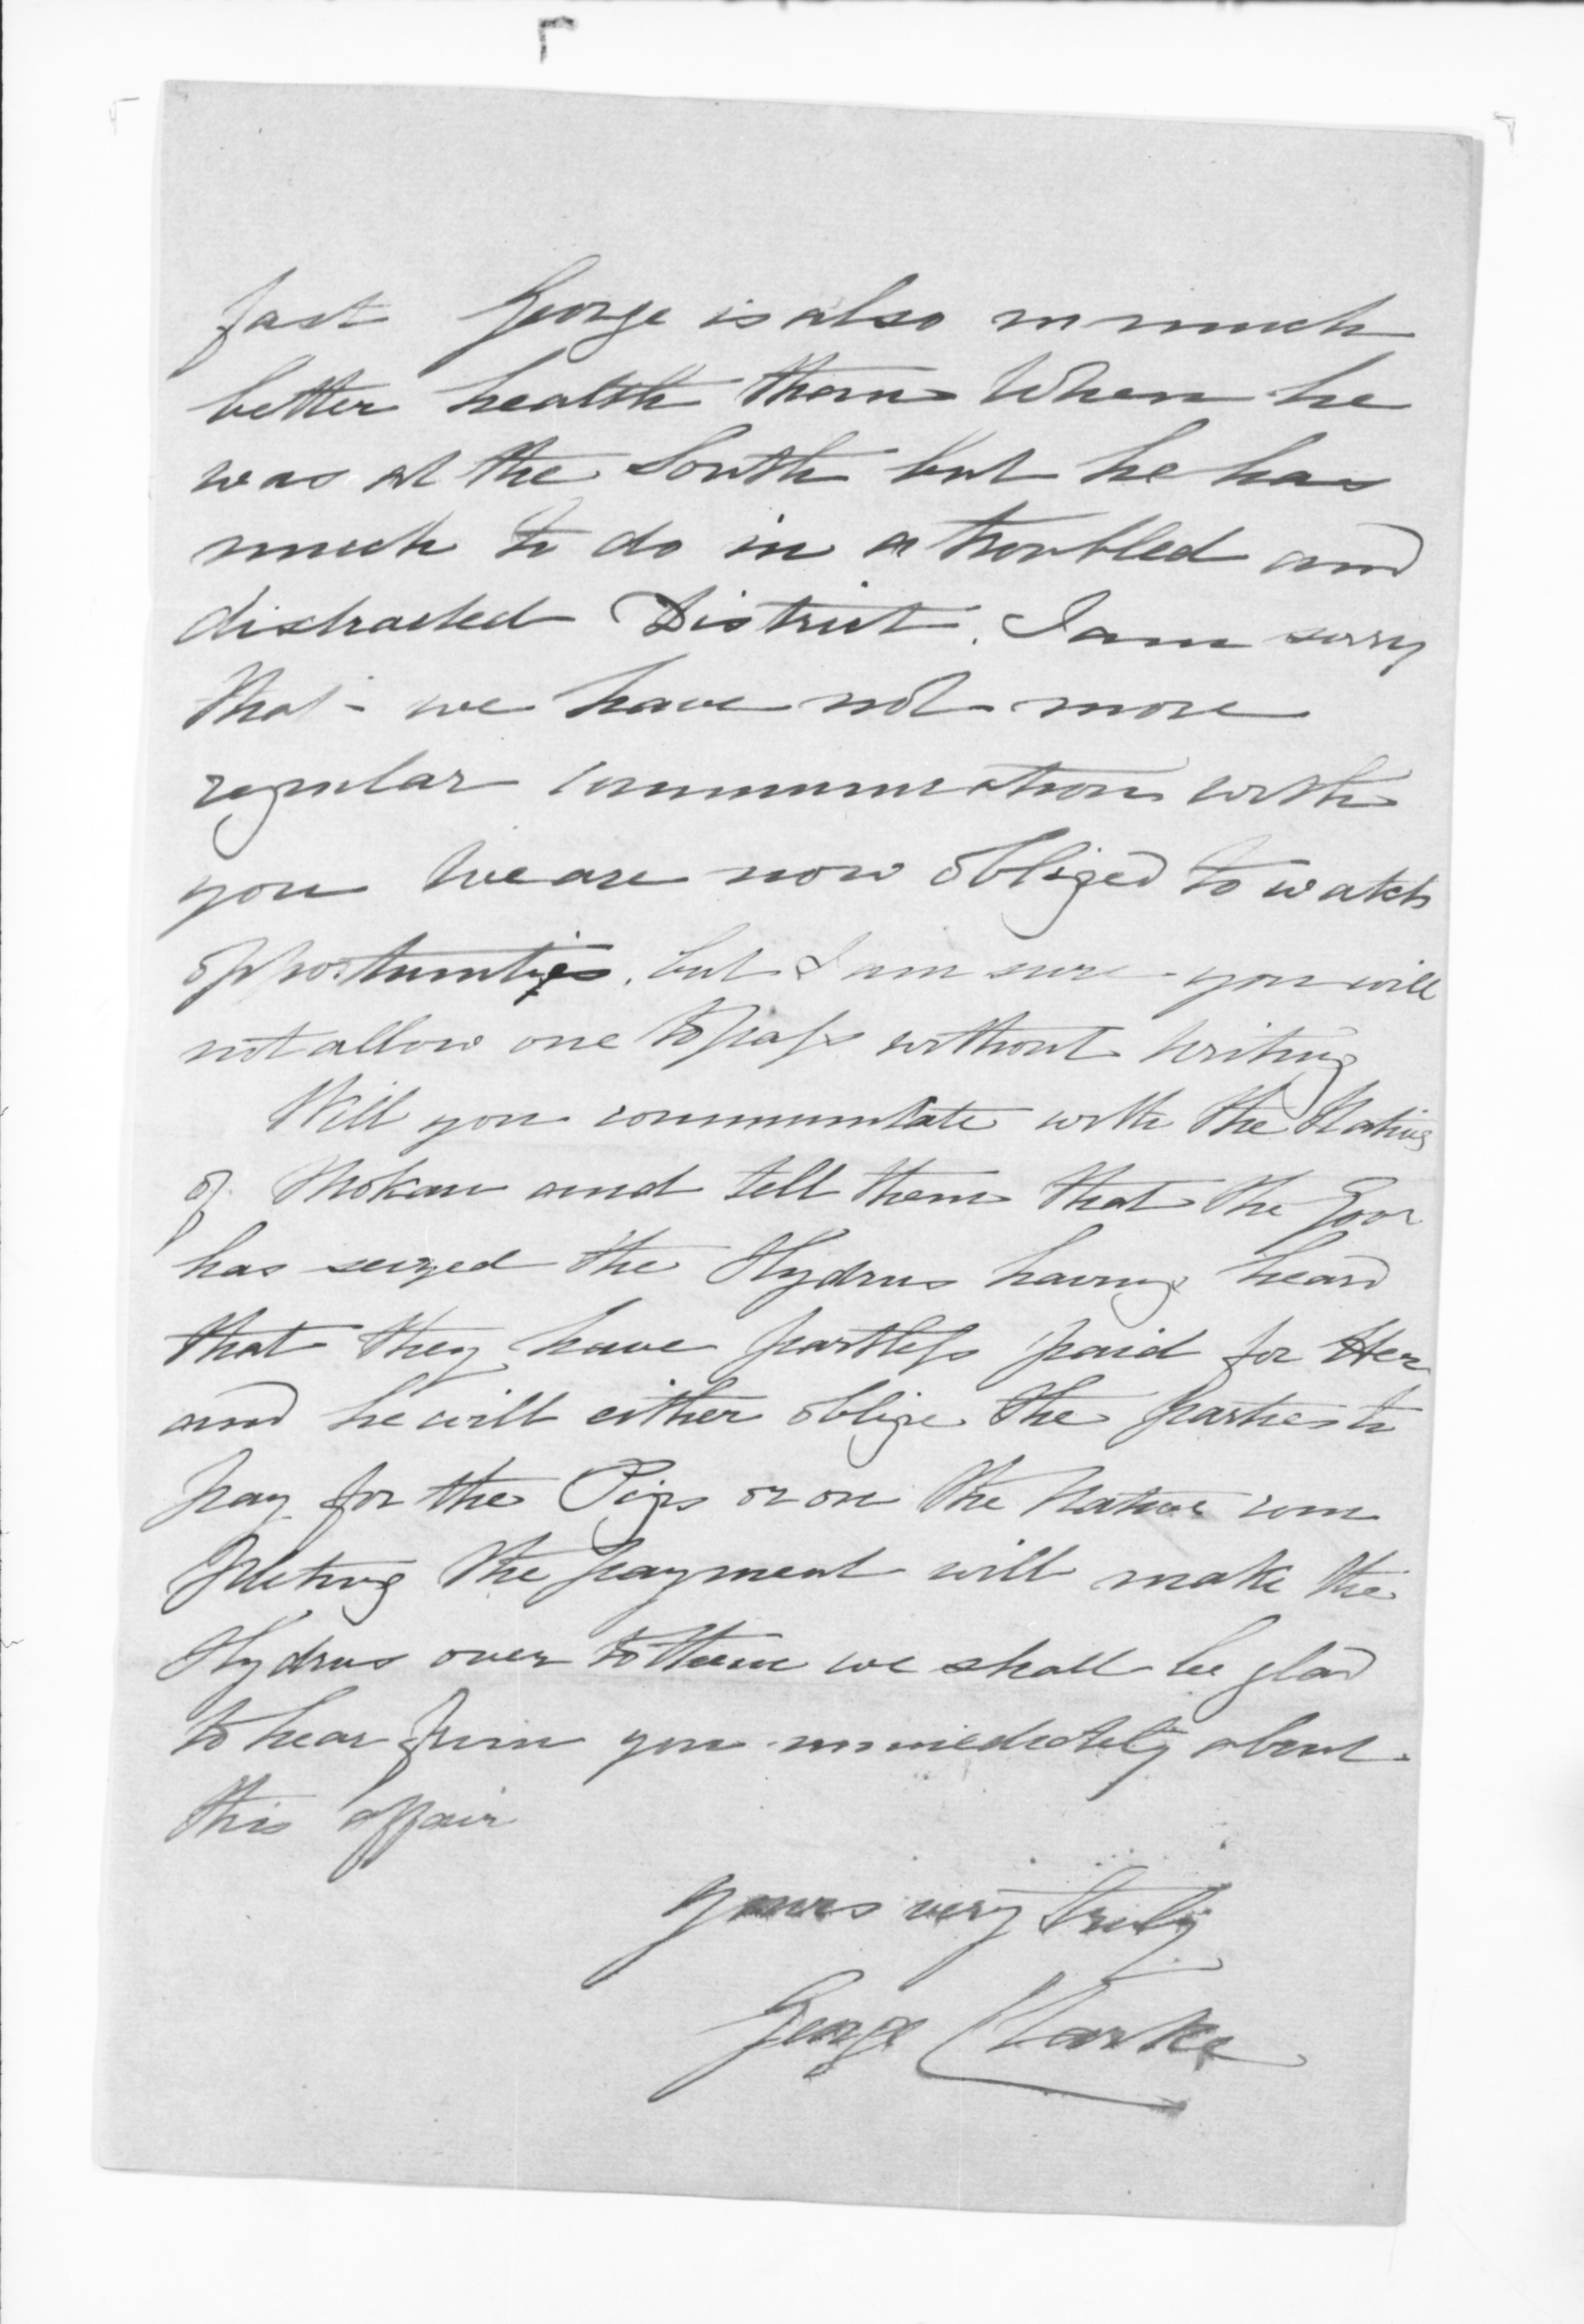 fast George is also in much
better health than when he
was at the South but he has
much to do in a troubled and
distracted District. I am sorry
that we have not more
regular communication with
you we are now obliged to watch
opportunities, but I am sure you will
not allow one to pass without writing
Will you communicate with the Natives
of Mokau and tell them that the Govr
has seized the Hydrus having heard
that they have partly paid for Her
and he will either oblige the parties to
pay for the Pigs or on the Native com
pleting the payment will make the
Hydrus over to them we shall be glad
to hear from you immediately about
this affair
yours very truly
George Clarke